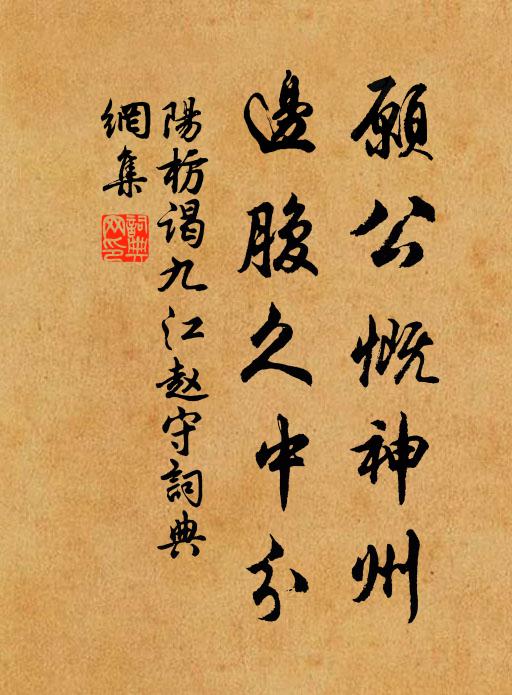 願公慨神州
邊腹久中分
陽枋謁九江赵守詞典
網集
詞典
网印